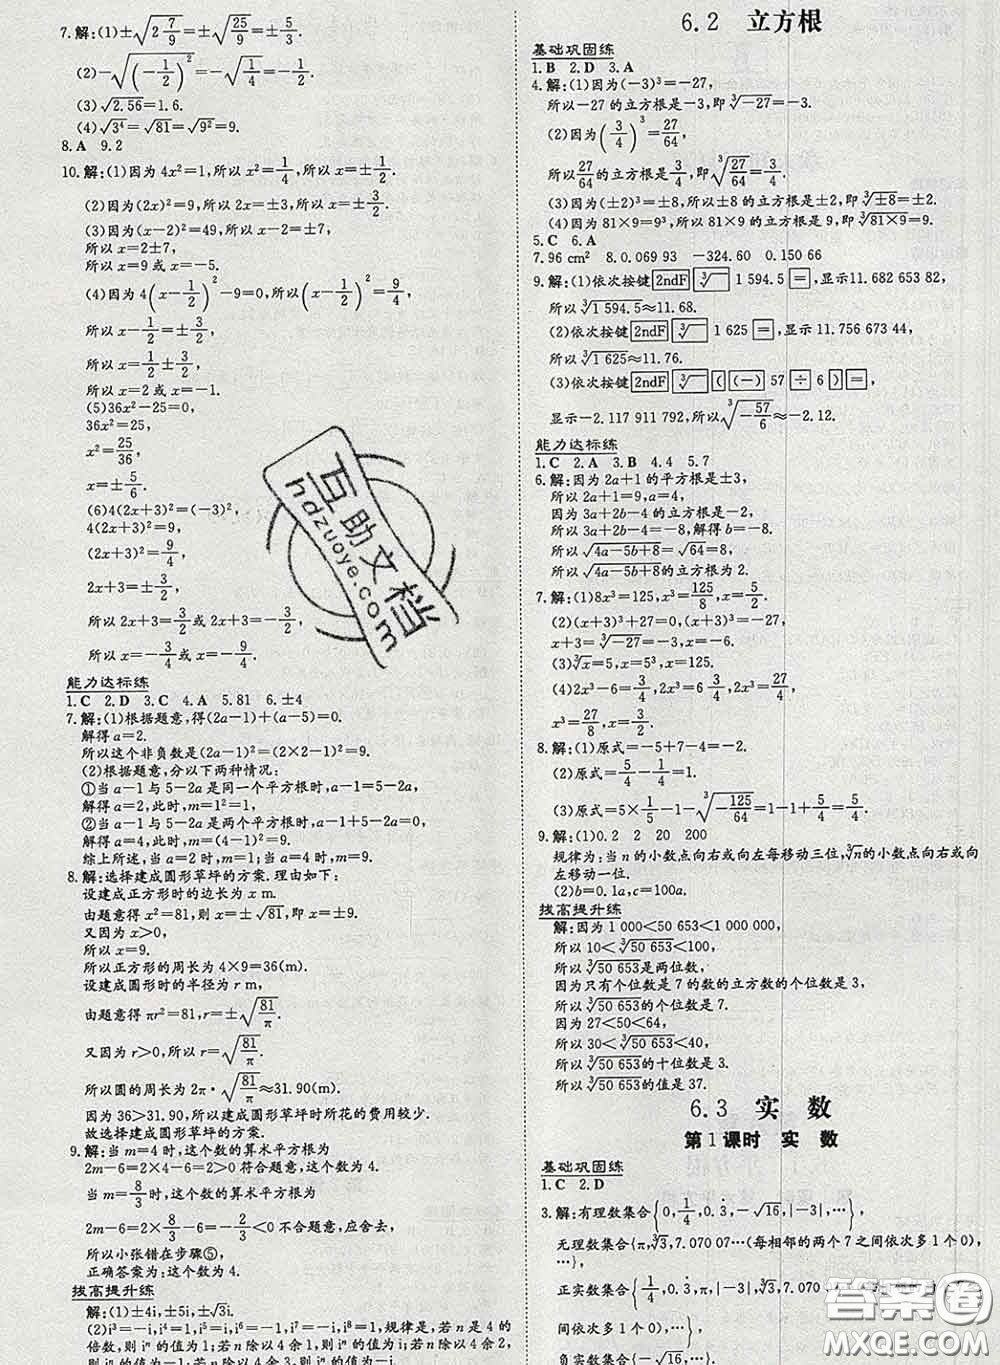 7.解:(1)±√(2 7/9)=±√(25/9)=±5/3.
(2)-√((-1/2)²)=-√(1/4)=-1/2.
(3)√2.56=1.6.
(4)√3⁴=√81=√9²=9.
8.A 9.2
10.解:(1)因为 4x²=1,所以 x²=1/4,所以 x=±1/2.
(2)因为(2x)²=9,所以 2x=±3,所以 x=±3/2.
(3)因为(x-2)²=49,所以 x-2=±7,
所以 x=2±7,
所以 x=9 或 x=-5.
(4)因为 4(x-1/2)²-9=0,所以(x-1/2)²=9/4,
所以 x-1/2=±3/2,
所以 x=1/2±3/2,
所以 x=2 或 x=-1.
(5)36x²-25=0,
36x²=25,
x²=25/36,
x=±5/6.
(6)4(2x+3)²=(-3)²,
4(2x+3)²=9,
(2x+3)²=9/4,
2x+3=±3/2,
所以 2x+3=3/2 或 2x+3=-3/2,
所以 x=-3/4 或 x=-9/4.
能力达标练
1.C 2.D 3.C 4.A 5.81 6.±4
7.解:(1)根据题意,得(2a-1)+(a-5)=0.
解得 a=2.
所以这个非负数是(2a-1)²=(2×2-1)²=9.
(2)根据题意,分以下两种情况:
①当 a-1 与 5-2a 是同一个平方根时,a-1=5-2a,
解得 a=2,此时,m=1²=1;
②当 a-1 与 5-2a 是两个平方根时,a-1+5-2a=0,
解得 a=4,此时,m=(4-1)²=9.
综上所述,当 a=2 时,m=1;当 a=4 时,m=9.
8.解:选择建成圆形草坪的方案.理由如下:
设建成正方形时的边长为 x m.
由题意得 x²=81,则 x=±√81,即 x=±9.
又因为 x>0,
所以 x=9.
所以正方形的周长为 4×9=36(m).
设建成圆形时的半径为 r m,
由题意得 πr²=81,r=±√(81/π).
又因为 r>0,所以 r=√(81/π).
所以圆的周长为 2π·√(81/π)≈31.90(m).
因为 36>31.90,所以建成圆形草坪时所花的费用较少.
故选择建成圆形草坪的方案.
9.解:当 m=4 时,这个数的算术平方根为
2m-6=2×4-6=2>0 符合题意,则这个数为 2²=4.
当 m=8/3 时,这个数的算术平方根为
2m-6=2×8/3-6=-2/3<0 不合题意,应舍去,
所以小张错在步骤⑤,
正确答案为:这个数为 4.
拔高提升练
解:(1)±4i,±5i,±√3i.
(2)i³=-i,i⁴=1,i⁵=i,i⁶=-1,i⁷=-i,i⁸=1,规律是,若 n 是 4 的
倍数,则 iⁿ 的值为 1;若 n 除以 4 余 1,则 iⁿ 的值为 i;若 n 除以 4 余 2,
6.2 立方根
基础巩固练
1.B 2.D 3.A
4.解:(1)因为(-3)³=-27,
所以-27 的立方根是-3,即∛-27=-3.
(2)因为(3/4)³=27/64,
所以 27/64 的立方根是 3/4,即∛(27/64)=3/4.
(3)因为(±2)³=±8,所以±8 的立方根是±2,即∛±8=±2.
(4)因为 81×9=9³,所以 81×9 的立方根是 9,即∛81×9=9.
5.C 6.A
7.96 cm² 8.0.069 93 -324.60 0.150 66
9.解:(1)依次按键 2ndF ∛ 1 594.5 =,显示11.682 653 82,
所以∛1 594.5≈11.68.
(2)依次按键 2ndF ∛ 1 625 =,显示 11.756 673 44,
所以∛1 625≈11.76.
(3)依次按键 2ndF ∛ ( (-) 57 ÷ 6 ) =,
显示-2.117 911 792,所以∛(-57/6)≈-2.12.
能力达标练
1.C 2.A 3.B 4.4 5.7
6.解:因为 2a+1 的平方根是±3,
所以 2a+1=9,a=4,
因为 3a+2b-4 的立方根是-2,
所以 3a+2b-4=-8,解得 b=-8,
所以√(4a-5b+8)=√64=8,
所以√(4a-5b+8)的立方根为 2.
7.解:(1)8x³=125,x³=125/8,x=5/2.
(2)(x+3)³+27=0,(x+3)³=-27,
x+3=∛-27=-3,x=-6.
(3)∛x=5,x=5³,x=125.
(4)2x³-6=3/4,2x³=6 3/4,2x³=27/4,
x³=27/8,x=3/2.
8.解:(1)原式=-5+7-4=-2.
(2)原式=5/4-1/4=1.
(3)原式=5×1/5-1-∛(-125/64)=1-1+5/4=5/4.
9.解:(1)0.2 2 20 200
规律为:当 n 的小数点向右或向左每移动三位,∛n的小数点向右或向
左移动一位.
(2)b=0.1a,c=100a.
拔高提升练
解:因为 1 000<50 653<1 000 000,
所以 10<∛50 653<100,
所以∛50 653是两位数,
因为只有个位数是 7 的数的立方数的个位数是 3,
所以∛50 653的个位数是 7.
因为 27<50<64,
所以 30<∛50 653<40,
所以∛50 653的十位数是 3.
所以∛50 653的值是 37.
6.3 实 数
第 1 课时 实 数
基础巩固练
1.C 2.D
3.解:有理数集合{0,1/4,0.3̇,-√16,|-3|,…},
无理数集合{π,∛3,7.070 07…(每相邻的两个 7 之间依次多 1 个 0),
…},
正实数集合{1/4,0.3̇,π,|-3|,∛3,7.070
间依次多 1 个 0),…},
互助文档
hdzuoye.com
答案圈
MXQE.COM